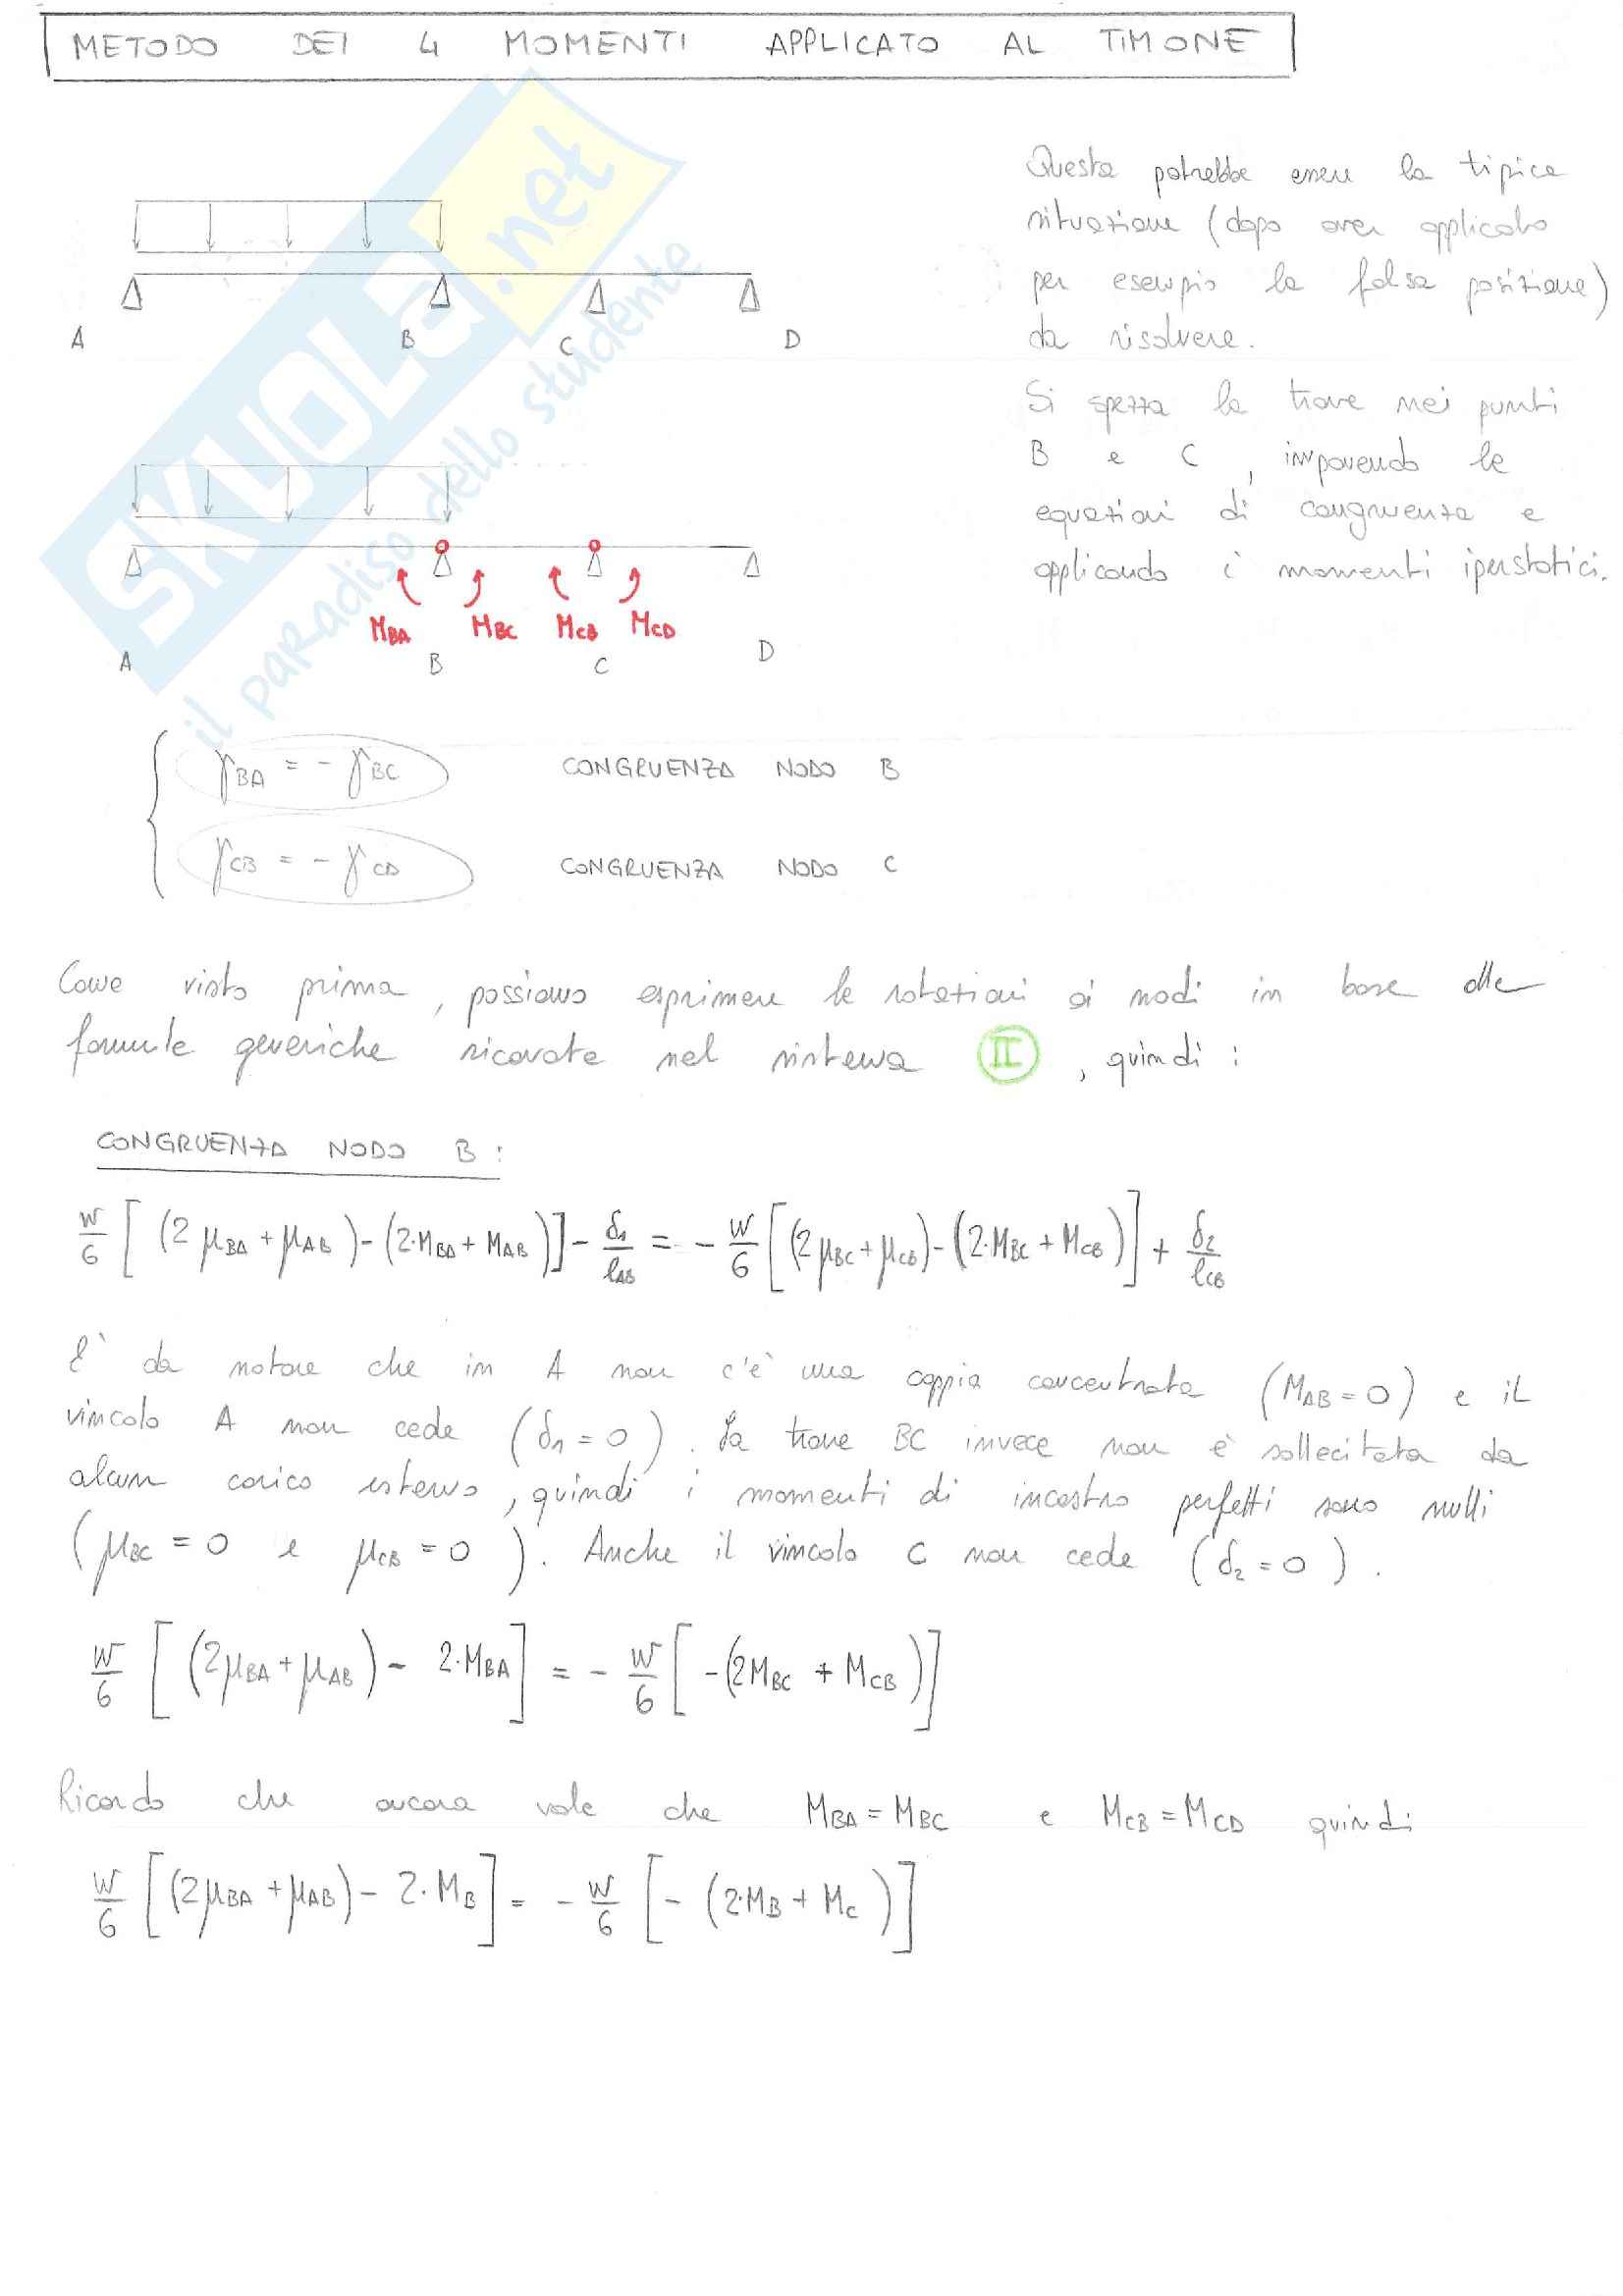 METODO DEI 4 MOMENTI APPLICATO AL TIMONE
SKUOLA.net
il paradiso dello studente
Questa potrebbe essere la tipica
situazione (dopo aver applicato
per esempio la falsa posizione)
da risolvere.
A B C D
Si spezza la trave nei punti
B e C, imponendo le
equazioni di congruenza e
applicando i momenti iperstatici.
MBA MBC MCB MCD
A B C D
γBA = - γBC CONGRUENZA NODO B
γCB = - γCD CONGRUENZA NODO C
Come visto prima, possiamo esprimere le rotazioni ai nodi in base alle
formule generiche ricavate nel sistema II, quindi:
CONGRUENZA NODO B:
W/6 [(2 μBA + μAB) - (2·MBA + MAB)] - δ1/lAB = - W/6 [(2μBC + μCB) - (2·MBC + MCB)] + δ2/lCB
E' da notare che in A non c'è una coppia concentrata (MAB = 0) e il
vincolo A non cede (δ1 = 0). La trave BC invece non è sollecitata da
alcun carico esterno, quindi i momenti di incastro perfetti sono nulli
(μBC = 0 e μCB = 0). Anche il vincolo C non cede (δ2 = 0).
W/6 [(2μBA + μAB) - 2·MBA] = - W/6 [-(2MBC + MCB)]
Ricordo che ancora vale che MBA = MBC e MCB = MCD quindi
W/6 [(2μBA + μAB) - 2·MB] = - W/6 [- (2·MB + MC)]